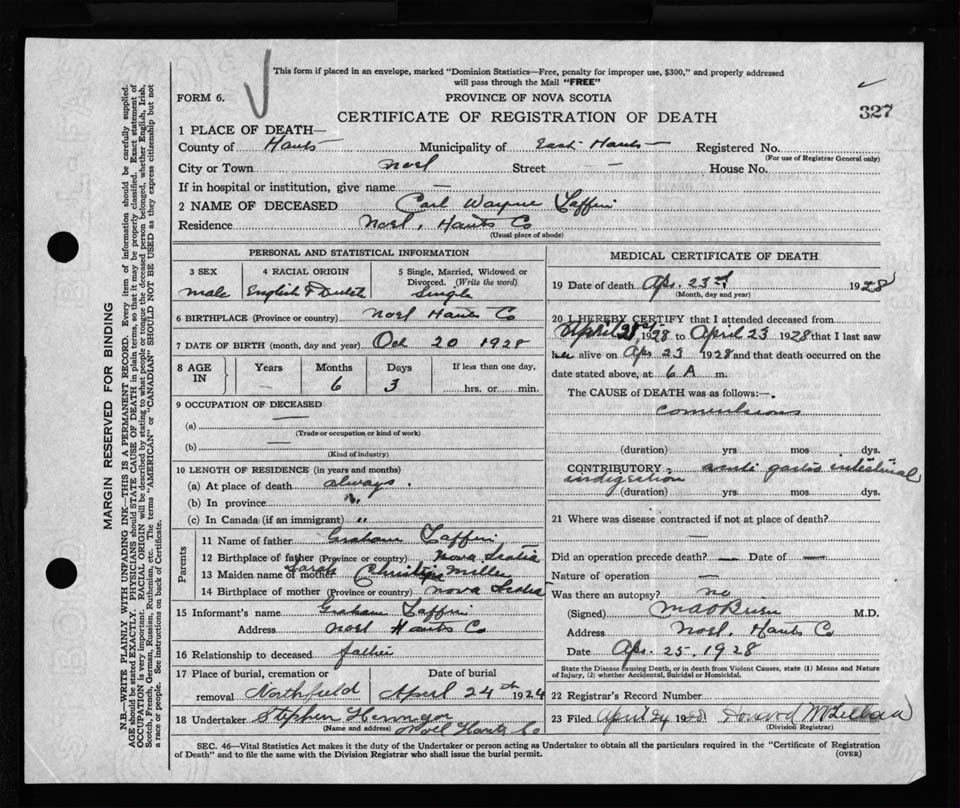 This form if placed in an envelope, marked "Dominion Statistics—Free, penalty for improper use, $300," and properly addressed
will pass through the Mail "FREE"
FORM 6.
PROVINCE OF NOVA SCOTIA
327
CERTIFICATE OF REGISTRATION OF DEATH
1 PLACE OF DEATH—
County of Hants Municipality of East Hants Registered No.
(For use of Registrar General only)
City or Town Noel Street — House No.
If in hospital or institution, give name —
2 NAME OF DECEASED Carl Wayne Laffin
Residence Noel, Hants Co
(Usual place of abode)
PERSONAL AND STATISTICAL INFORMATION
3 SEX 4 RACIAL ORIGIN 5 Single, Married, Widowed or
Divorced. (Write the word)
male English & Dutch Single
6 BIRTHPLACE (Province or country) Noel Hants Co
7 DATE OF BIRTH (month, day and year) Oct 20 1928
8 AGE IN Years Months Days If less than one day,
— 6 3 hrs. or min.
9 OCCUPATION OF DECEASED
(a) —
(Trade or occupation or kind of work)
(b) —
(Kind of industry)
10 LENGTH OF RESIDENCE (in years and months)
(a) At place of death always
(b) In province "
(c) In Canada (if an immigrant) "
Parents
11 Name of father Graham Laffin
12 Birthplace of father (Province or country) Nova Scotia
13 Maiden name of mother Sarah Christina Miller
14 Birthplace of mother (Province or country) Nova Scotia
15 Informant's name Graham Laffin
Address Noel Hants Co
16 Relationship to deceased father
17 Place of burial, cremation or Date of burial
removal Northfield April 24th 1924
18 Undertaker Stephen
(Name and address) Noel Hants Co
MEDICAL CERTIFICATE OF DEATH
19 Date of death Apr. 23rd 1928
(Month, day and year)
20 I HEREBY CERTIFY that I attended deceased from
April 1928 to April 23 1928 that I last saw
alive on Apr 23 1928 and that death occurred on
date stated above, at 6 A m.
The CAUSE of DEATH was as follows:—
convulsions
(duration) yrs mos. dys.
CONTRIBUTORY gastro intestinal
indigestion
(duration) yrs. mos. dys.
21 Where was disease contracted if not at place of death?
—
Did an operation precede death? — Date of —
Nature of operation —
Was there an autopsy? no
(Signed) M.D.
Address Noel, Hants Co
Date Apr. 25, 1928
State the Disease causing Death, or in death from Violent Causes, state (1) Means and Nature
of Injury, (2) whether Accidental, Suicidal or Homicidal.
22 Registrar's Record Number
23 Filed April 24 1928
(Division Registrar)
SEC. 46—Vital Statistics Act makes it the duty of the Undertaker or person acting as Undertaker to obtain all the particulars required in the "Certificate of Registration
of Death" and to file the same with the Division Registrar who shall issue the burial permit.
(OVER)
MARGIN RESERVED FOR BINDING
N.B.—WRITE PLAINLY WITH UNFADING INK—THIS IS A PERMANENT RECORD. Every item of information should be carefully supplied.
AGE should be stated EXACTLY. PHYSICIANS should STATE CAUSE OF DEATH in plain terms, so that it may be properly classified. Exact statement of
OCCUPATION is very important. RACIAL ORIGIN will be described by stating to what people or tongue the deceased person belonged, whether English, Irish,
Scotch, French, German, Russian, Ruthenian, etc. The terms "AMERICAN" or "CANADIAN" SHOULD NOT BE USED as they express citizenship but not
a race or people. See instructions on back of Certificate.